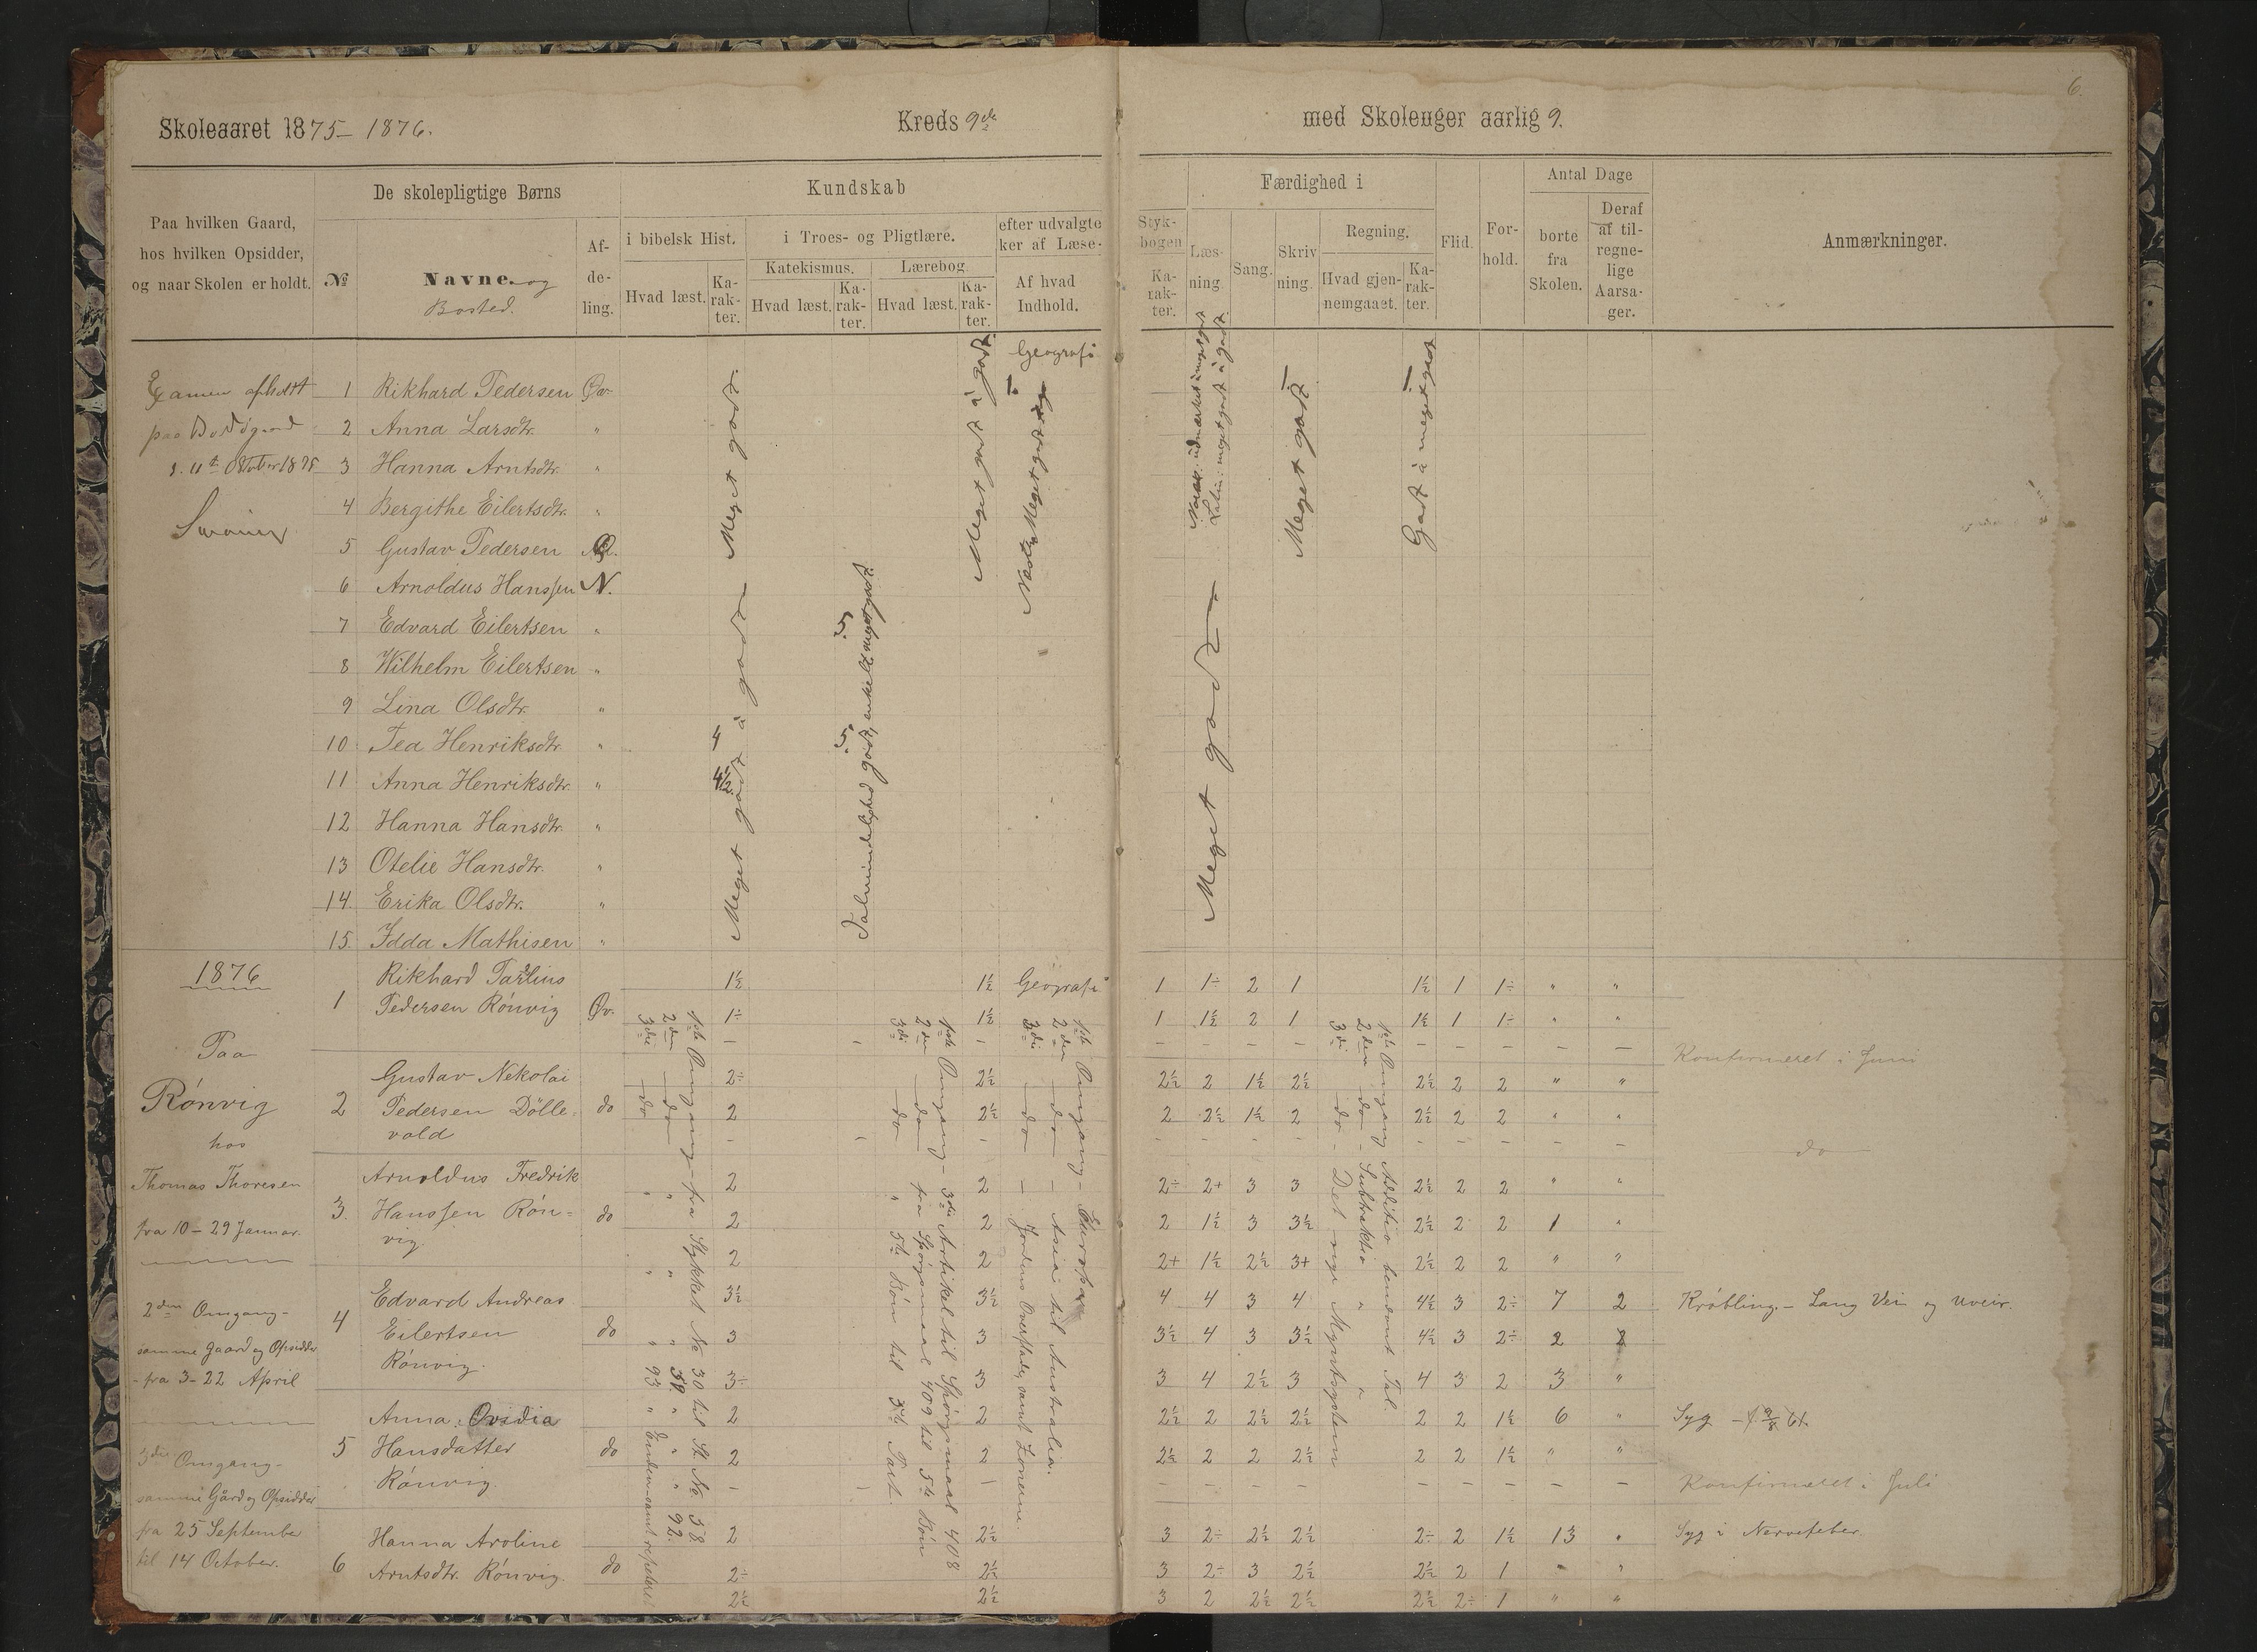 6.
Skoleaaret 1875 – 1876.
Kreds 9de
med Skoleuger aarlig 9.
Paa hvilken Gaard,
hos hvilken Opsidder,
og naar Skolen er holdt.
De skolepligtige Børns
№
Navne og
Bosted.
Af-
de-
ling.
Kundskab
i bibelsk Hist.
Hvad læst.
Ka-
rak-
ter.
i Troes- og Pligtlære.
Katekismus.
Hvad læst.
Ka-
rak-
ter.
Lærebog.
Hvad læst.
Ka-
rak-
ter.
efter udvalgte
ker af Læse-
Af hvad
Indhold.
Styk-
bogen
Ka-
rak-
ter.
Færdighed i
Læs-
ning.
Sang.
Skriv
ning.
Regning.
Hvad gjen-
nemgaaet.
Ka-
rak-
ter.
Flid.
For-
hold.
Antal Dage
borte
fra
Skolen.
Deraf
af til-
regne-
lige
Aarsa-
ger.
Anmærkninger.
Examen afholdt
paa Bodøgaard
October 1875
Geografi
1 Rikhard Pedersen Øv.
2 Anna Larsdtr. "
3 Hanna Arntsdtr. "
4 Bergithe Eilertsdtr. "
5 Gustav Pedersen
6 Arnoldus Hanssen N.
7 Edvard Eilertsen "
8 Wilhelm Eilertsen "
9 Lina Olsdtr. "
10 Tea Henriksdtr. " 4 5.
11 Anna Henriksdtr. " 4½
12 Hanna Hansdtr. "
13 Otelie Hansdtr. "
14 Erika Olsdtr. "
15. Idda Mathisen "
Meget godt.
Meget godt à godt
Meget godt à godt.
Meget godt
Meget godt
Godt à meget godt
1876
Paa
Rønvig
hos
Thomas Thoresen
fra 10 – 29 Januar.
2den Omgang –
samme Gaard og Opsidder
– fra 3 – 22 April
3die Omgang –
samme Gård og Opsidder
fra 25 September
til 14 October.
1
Pedersen Rønvig Øv.
1½ 1½ Geografi 1 1÷ 2 1 1½ 1 1÷ " "
1÷ 1½ 1 1½ 2 1 1½ 1 1÷ " "
Konfirmeret i Juni
2 Gustav Nekolai
Pedersen Dölle-
vold do
2÷ 2½ 2½ 2 1½ 2½ 2½ 2 2 " "
2 2½ 2 2½ 1½ 2 2½ 2 2 " "
do
3. Arnoldus Fredrik
Hanssen Røn=
vig. do
2 2 2÷ 2+ 3 3 2½ 2 2 " "
2 2 2 1½ 3 3½ 2½ 2 2 1 "
2 2 2+ 1½ 2½ 3+ 2½ 2 2 " "
4 Edvard Andreas
Eilertsen
Rønvig. do
3½ 3½ 4 4 3 4 4½ 3 2÷ 7 2 Krøbling. – Lang Vei og Uveir.
3 3 3½ 4 3 3½ 4½ 3 2÷ 2
3÷ 3 3 4 2½ 3 4 3 2 3 "
5 Anna Ovidia
Hansdatter
Rønvig. do
2 2 2½ 2 2½ 2½ 2 2 1½ 6 " Syg
2 2 2½ 2 2 2½ 2 2 1½ " "
Konfirmeret i Juli
6 Hanna Aroline
Arntsdtr. Rønvig. do
2 2½ 3 2÷ 2½ 2½ 2÷ 2 1½ 13 " Syg i Nervefeber.
2÷ 2½ 3 2÷ 3 2½ 2½ 2 1 " "
2½ 2½ 3 2 2½ 2½ 2½ 2÷ 1 " "
1ste Omgang – fra Stykket No 30 til St. No. 58
2den – do – " " " 58. " " " 92.
3die – do " " " 93 " Enden samt repeteret
1ste Omgang – 3die Artikel til Spørgsmaal 408
2den – do – fra Spørgsmaal 409 til 5te Bøn
3die – do " 5te Bøn til 5te Part.
1ste Omgang – Europa
2den – do – Asia til Australia.
3die – do – Jordens Overflade, samt Zonerne.
1ste Omgang Additio benævnt Tal.
2den – do – Subtraktio " "
3die – do – Det nye Myntsystem